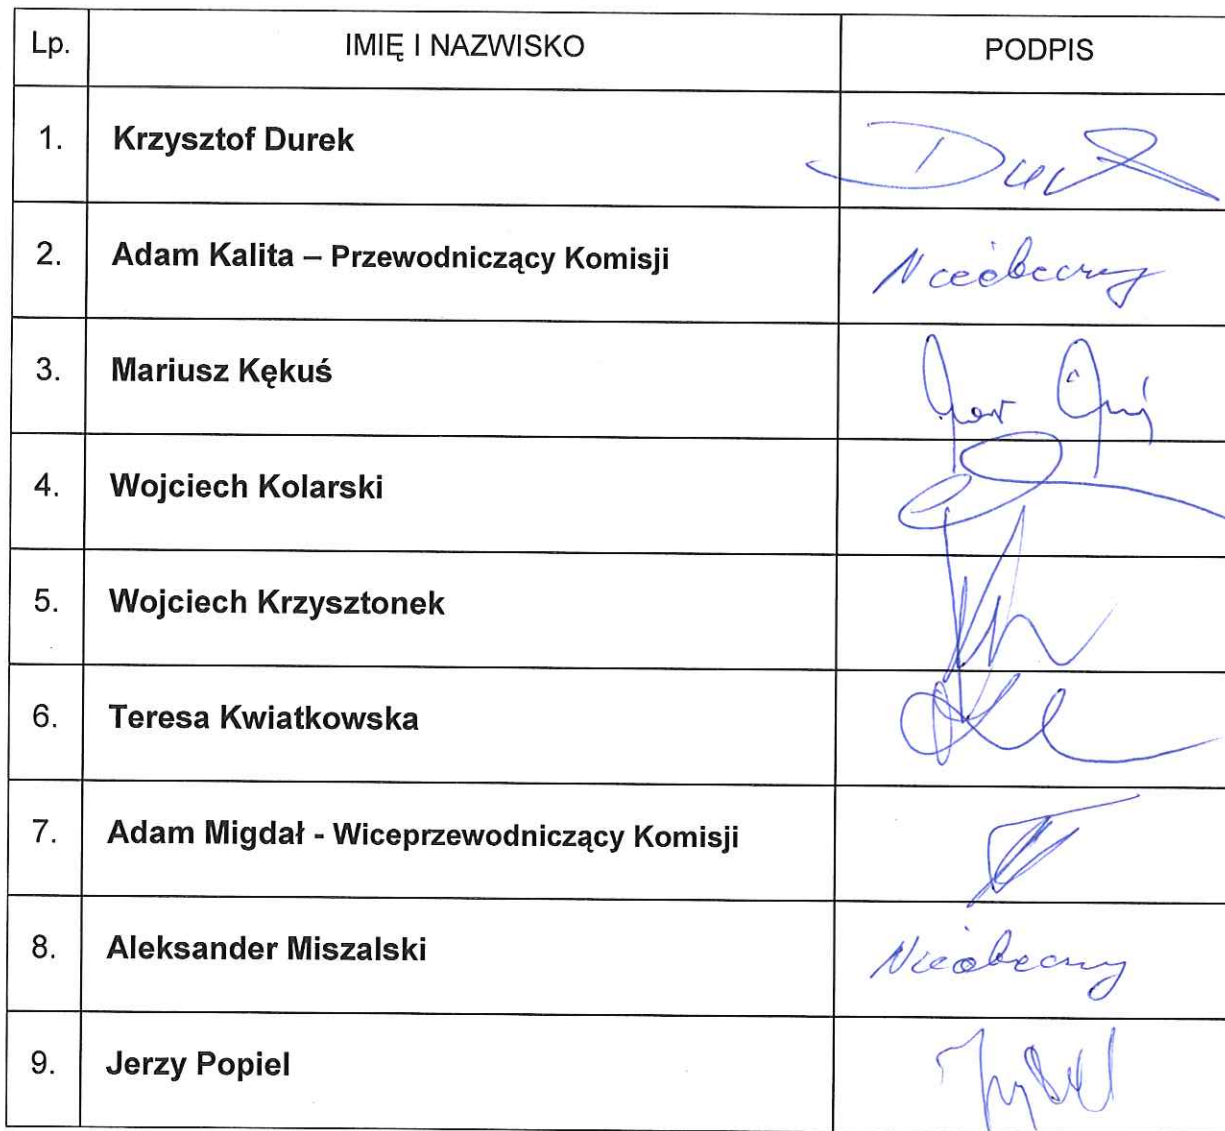 Lp. IMIĘ I NAZWISKO PODPIS
1. Krzysztof Durek
2. Adam Kalita – Przewodniczący Komisji Nieobecny
3. Mariusz Kękuś
4. Wojciech Kolarski
5. Wojciech Krzysztonek
6. Teresa Kwiatkowska
7. Adam Migdał - Wiceprzewodniczący Komisji
8. Aleksander Miszalski Nieobecny
9. Jerzy Popiel